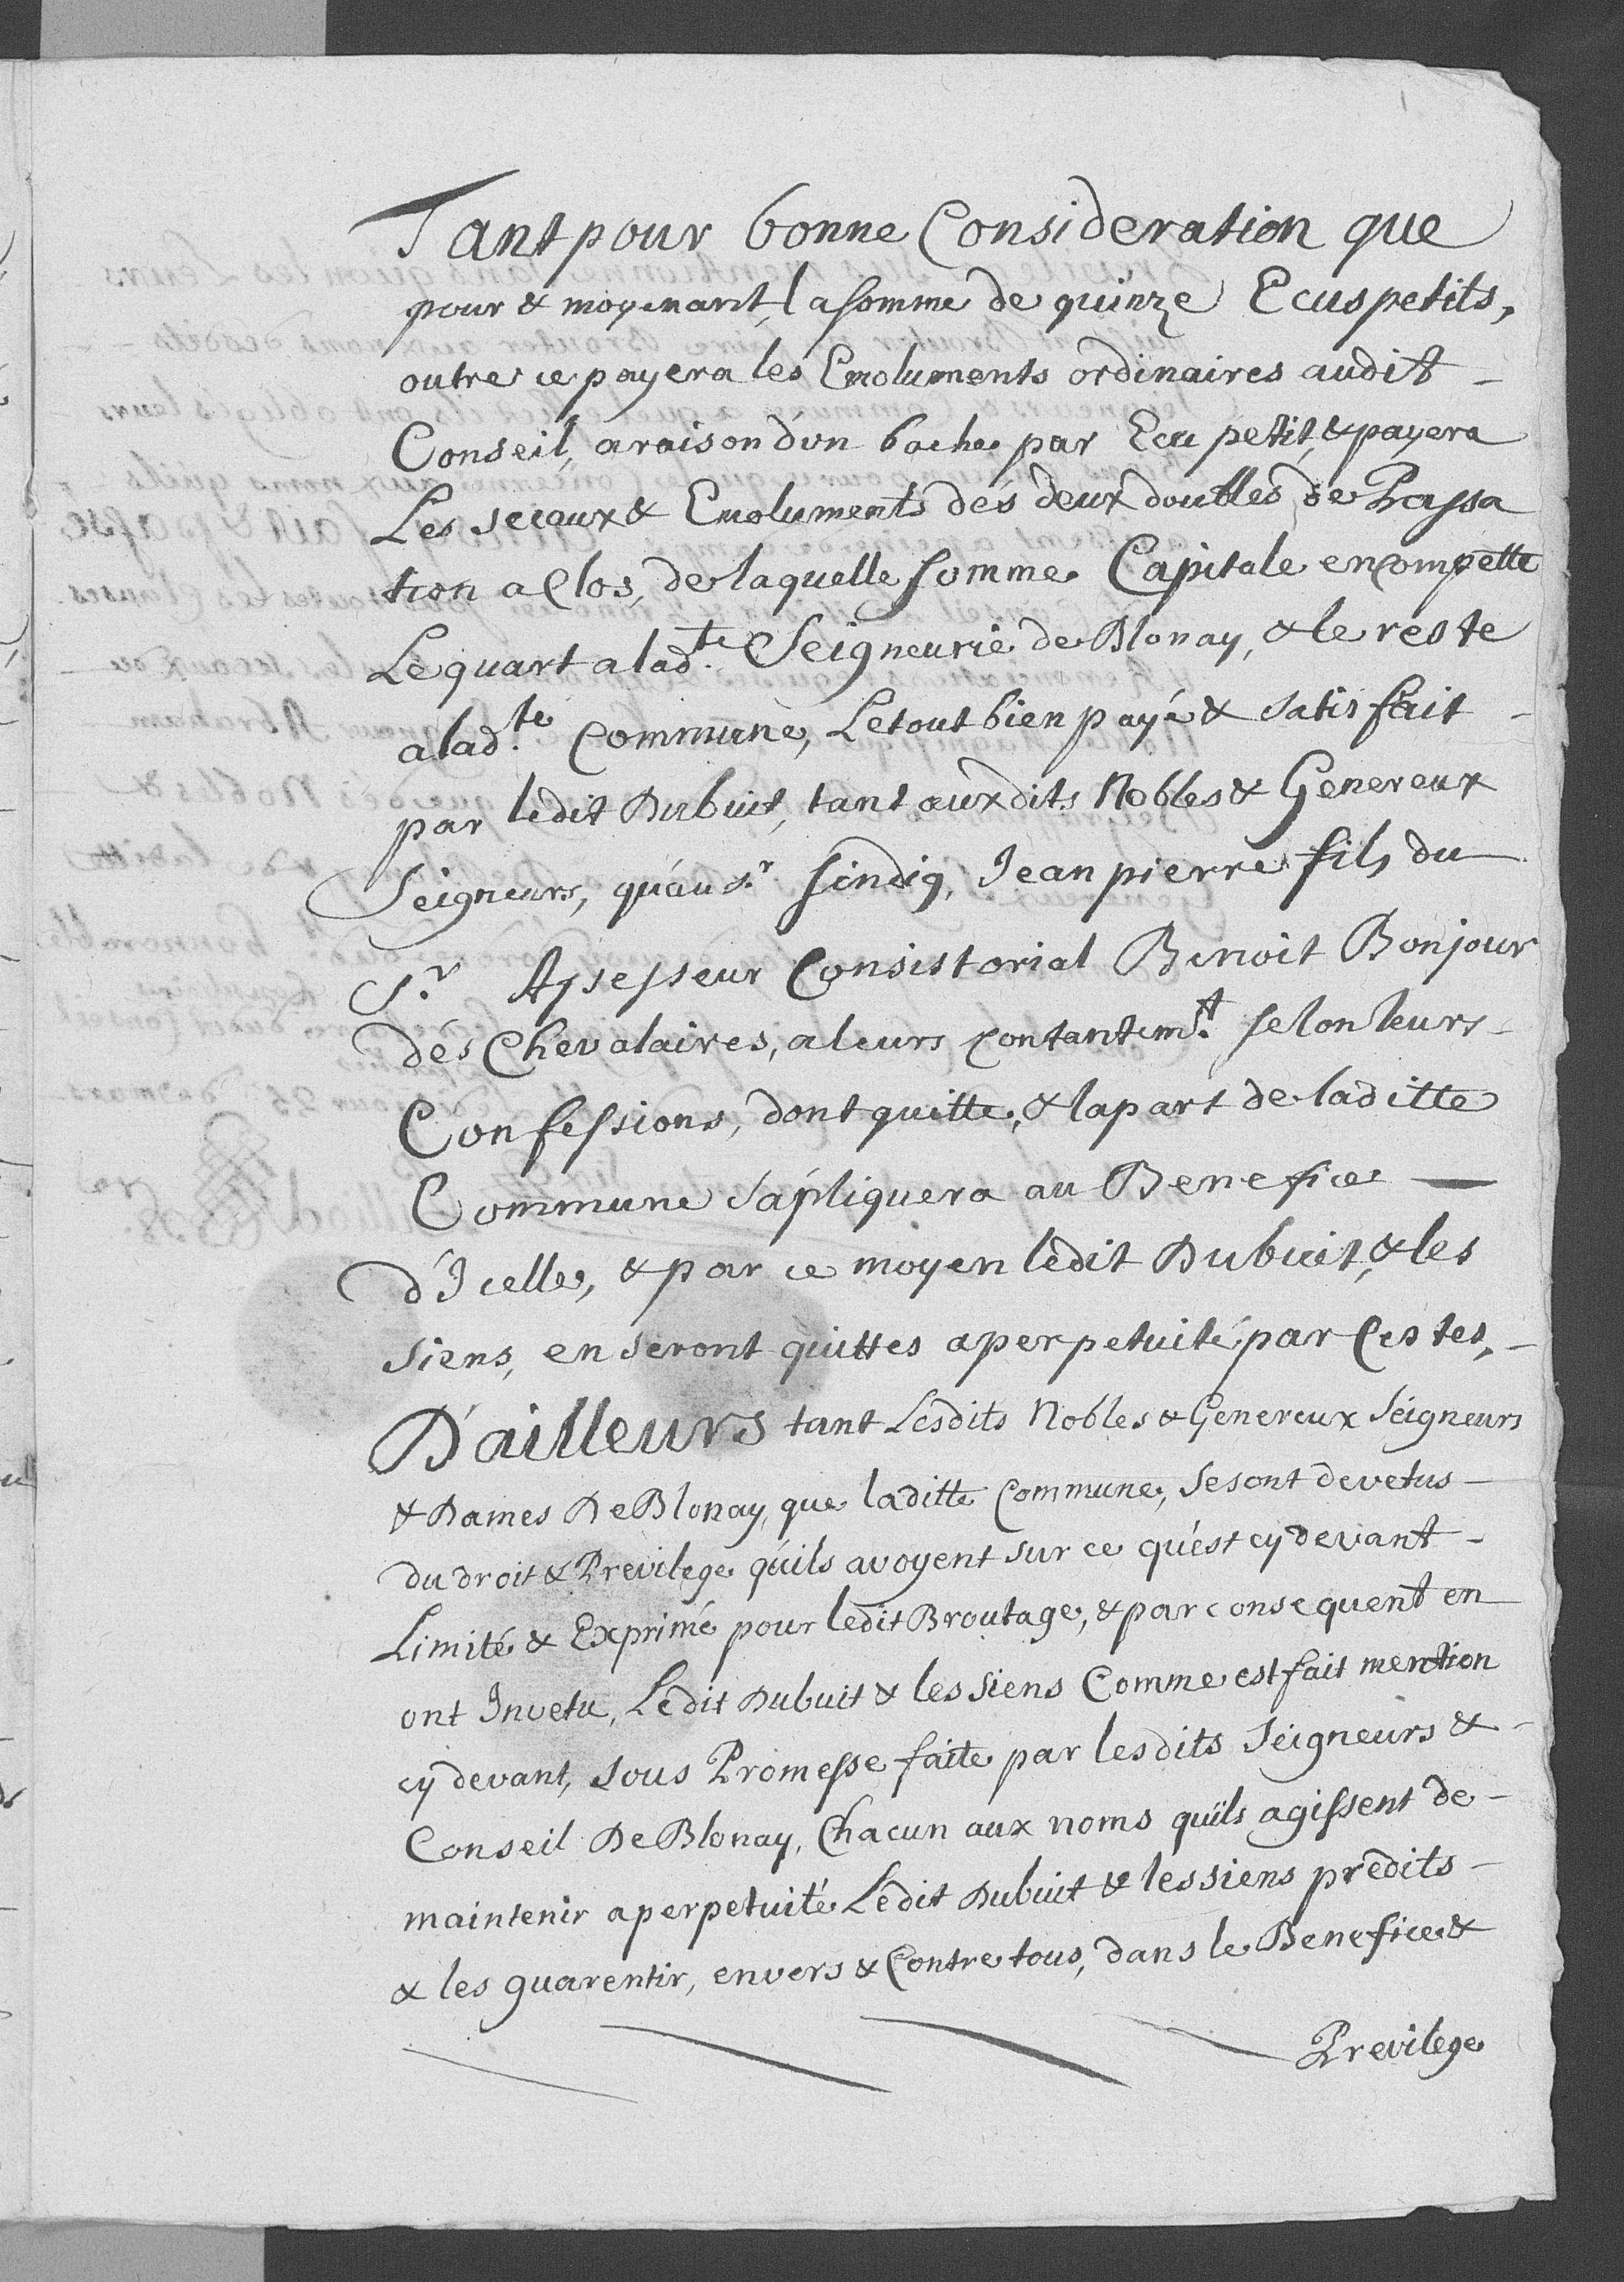 Tant pour bonne Consideration que
pour & moyenant, la somme de quinze Ecus petits,
outre ce payera les Emoluments ordinaires audit
Conseil, a raison d'un bache par Ecu petit, & payera
Les seeaux & Emoluments dés deux doubles de Passa
tion a Clos, de laquelle somme Capitale en compette
Le quart a lad.te Seigneurie de Blonay, & le reste
a lad.te Commune, Le tout bien payé & satisfait
par ledit Dubuit, tant auxdits Nobles & Genereux
Seigneurs, qu'au S.r Sindiq, Jean pierre fils du
S.r Assesseur Consistorial Benoit Bonjour
dés Chevalaires, a leurs contantem.t selon leurs
Confessions, dont quitte, & la part de laditte
Commune s'apliquera au Benefice
d'Icelle, & par ce moyen ledit Dubuit, & les
siens, en seront quittes a perpetuité par Cestes,
D'ailleurs tant Lesdits Nobles & Genereux Seigneurs
& Dames De Blonay, que laditte Commune, se sont devetus
du droit & Previlege qu'ils avoyent sur ce qu'est cy devant
Limité & Exprimé pour ledit Broutage, & par consequent en
ont Invetu, Ledit Dubuit & les siens Comme est fait mention
cy devant, sous Promesse faite par lesdits Seigneurs &
Conseil De Blonay, Chacun aux noms qu'ils agissent de
maintenir a perpetuité Ledit Dubuit & les siens predits
& les guarentir, envers & Contre tous, dans le Benefice &
Previlege